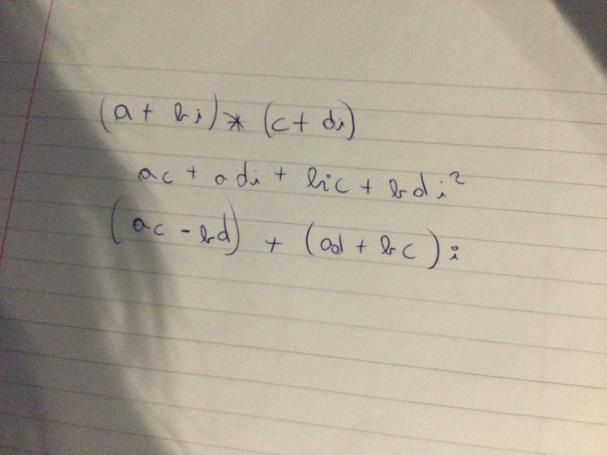 (a + bi) * (c + di)
ac + adi + bic + bdi²
(ac - bd) + (ad + bc)i